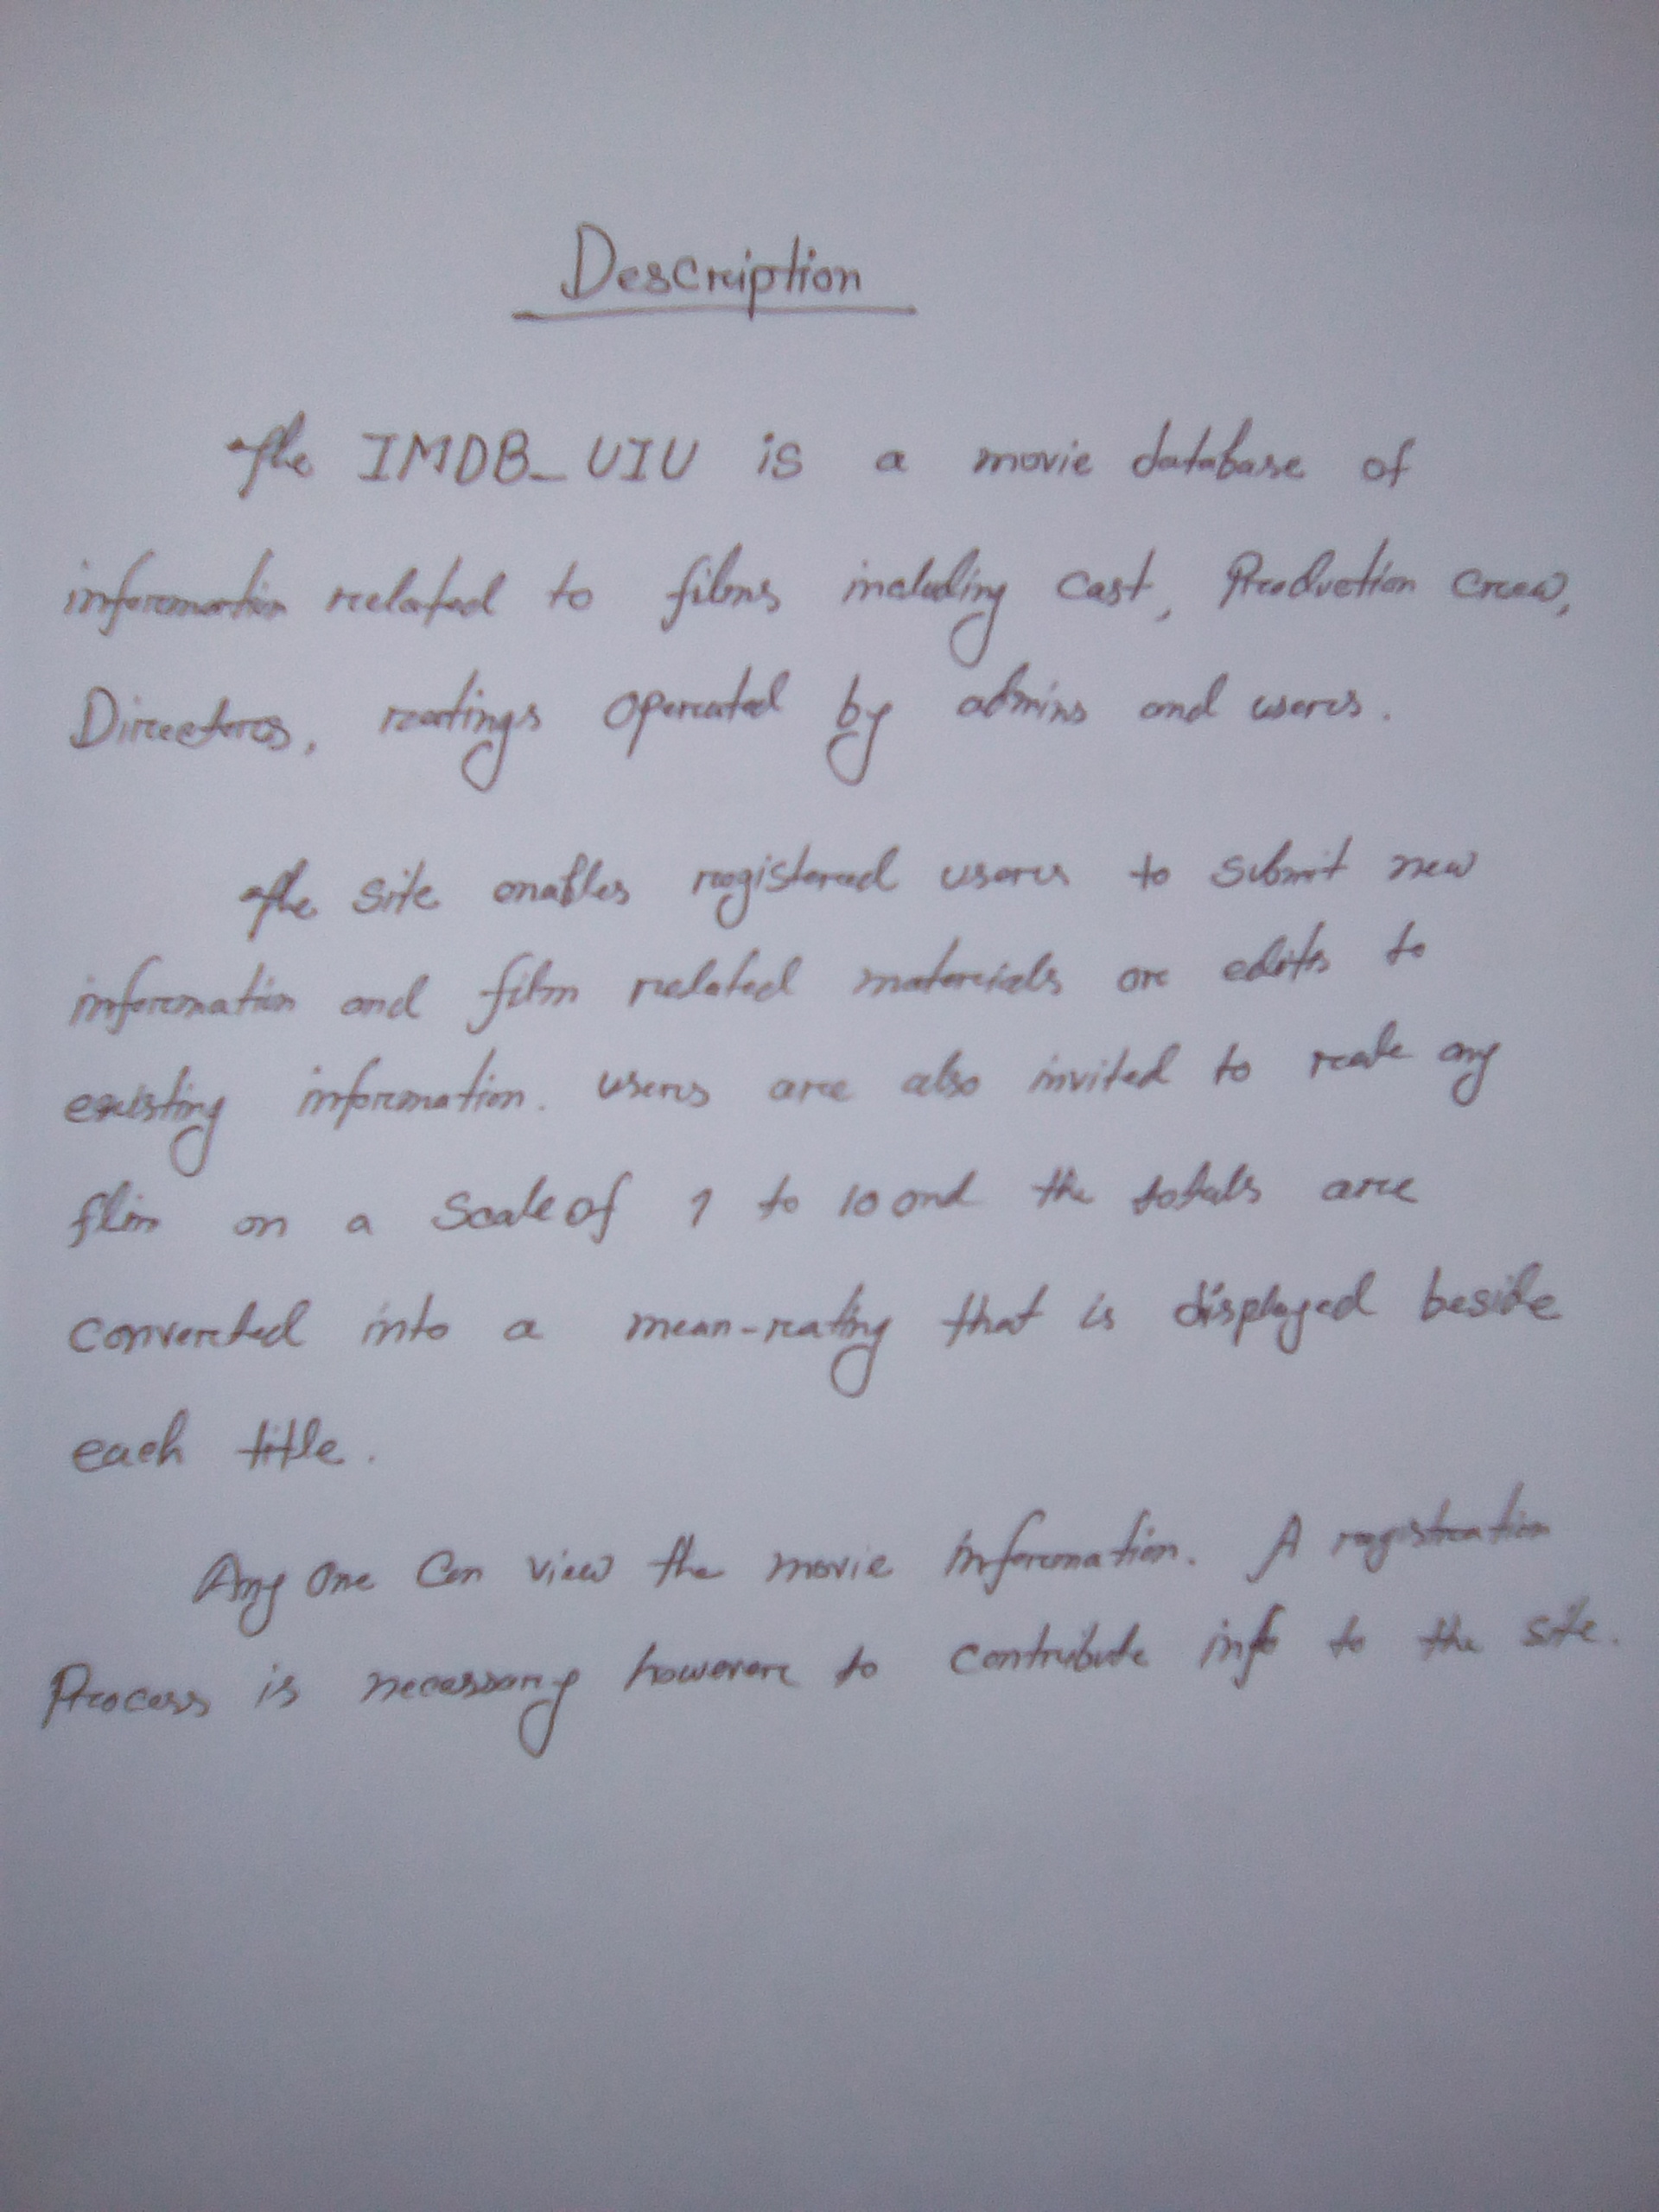 Description
The IMDB_UIU is a movie database of
information related to films including cast, Production crew,
Directors, ratings operated by admins and users.
The site enables registered users to submit new
information and film related materials or edits to
existing information. users are also invited to rate any
flim on a scale of 1 to 10 and the totals are
converted into a mean-rating that is displayed beside
each title.
Any one can view the movie information. A registration
Process is necessary however to contribute info to the site.